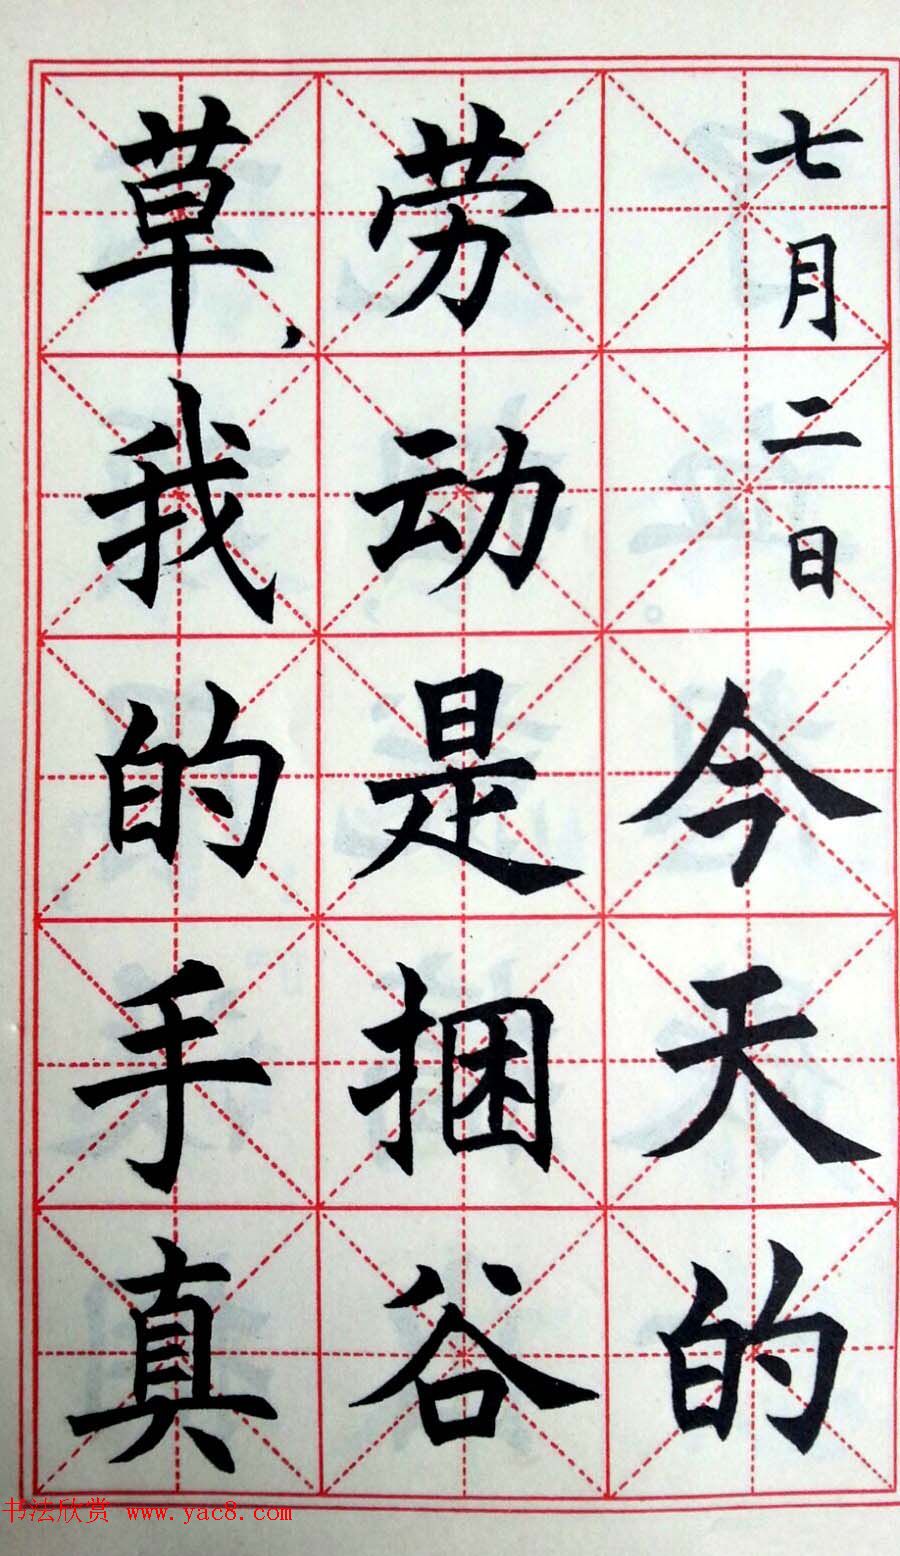 七月二日今天的
劳动是捆谷
草，我的手真
书法欣赏 www.yac8.com